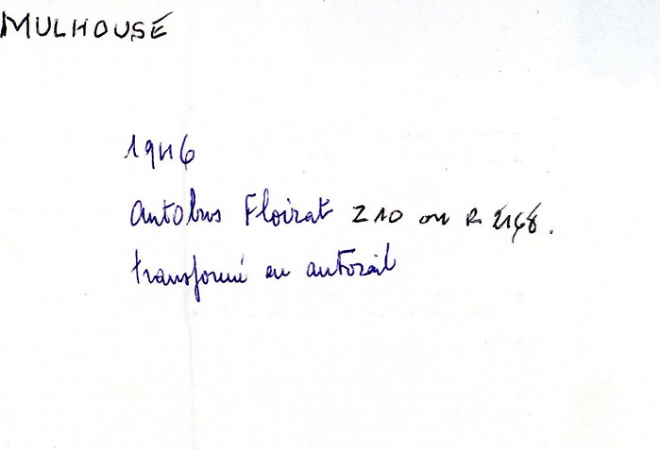 MULHOUSE
1946
autobus Floirat Z10 ou R 2168.
transformé en autorail